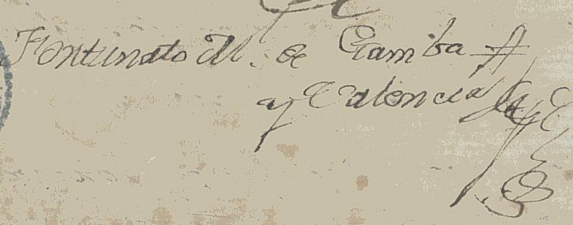 Fortunato M. de Gamba
y Valencia